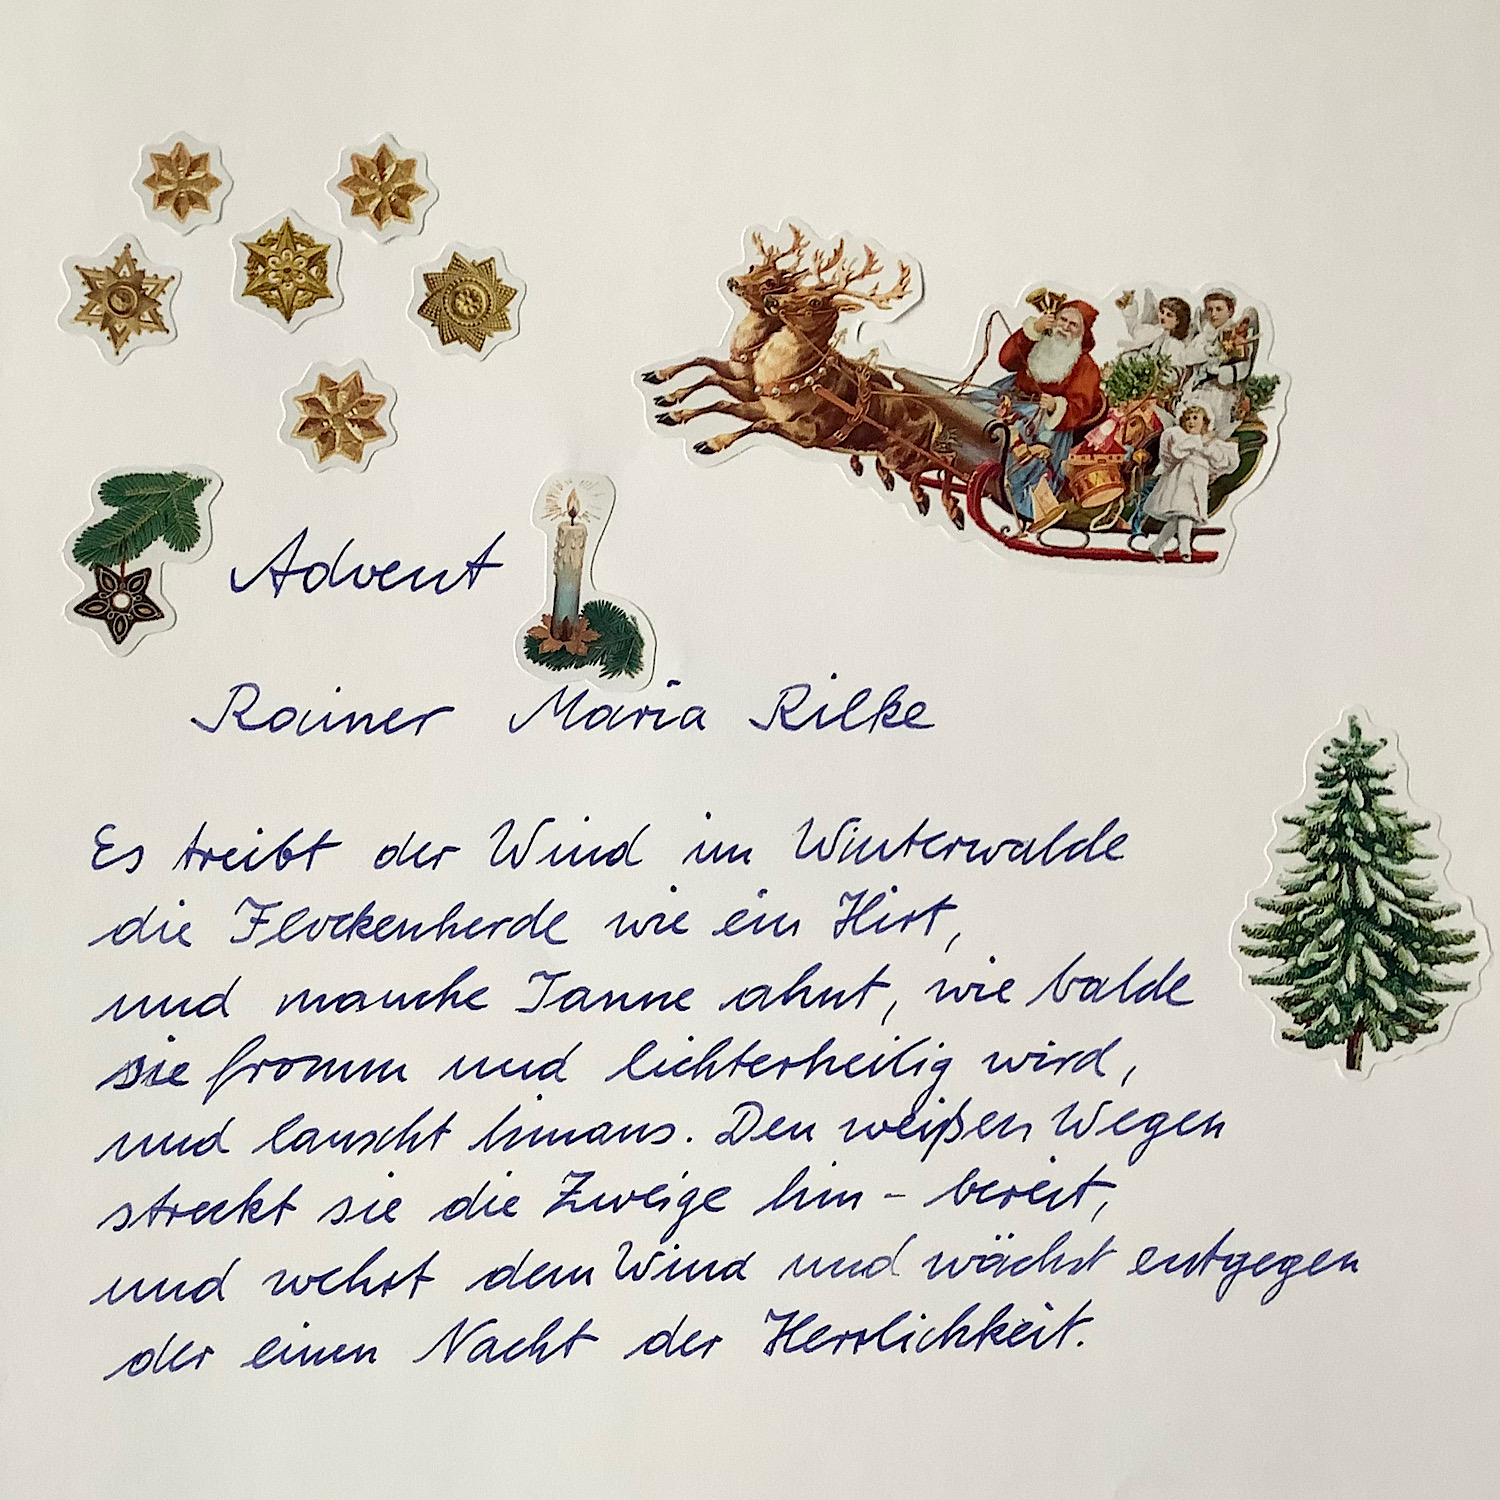 Advent
Rainer Maria Rilke
Es treibt der Wind im Winterwalde
die Flockenherde wie ein Hirt,
und manche Tanne ahnt, wie balde
sie fromm und lichterheilig wird,
und lauscht hinaus. Den weißen Wegen
streckt sie die Zweige hin - bereit,
und wehrt dem Wind und wächst entgegen
der einen Nacht der Herrlichkeit.